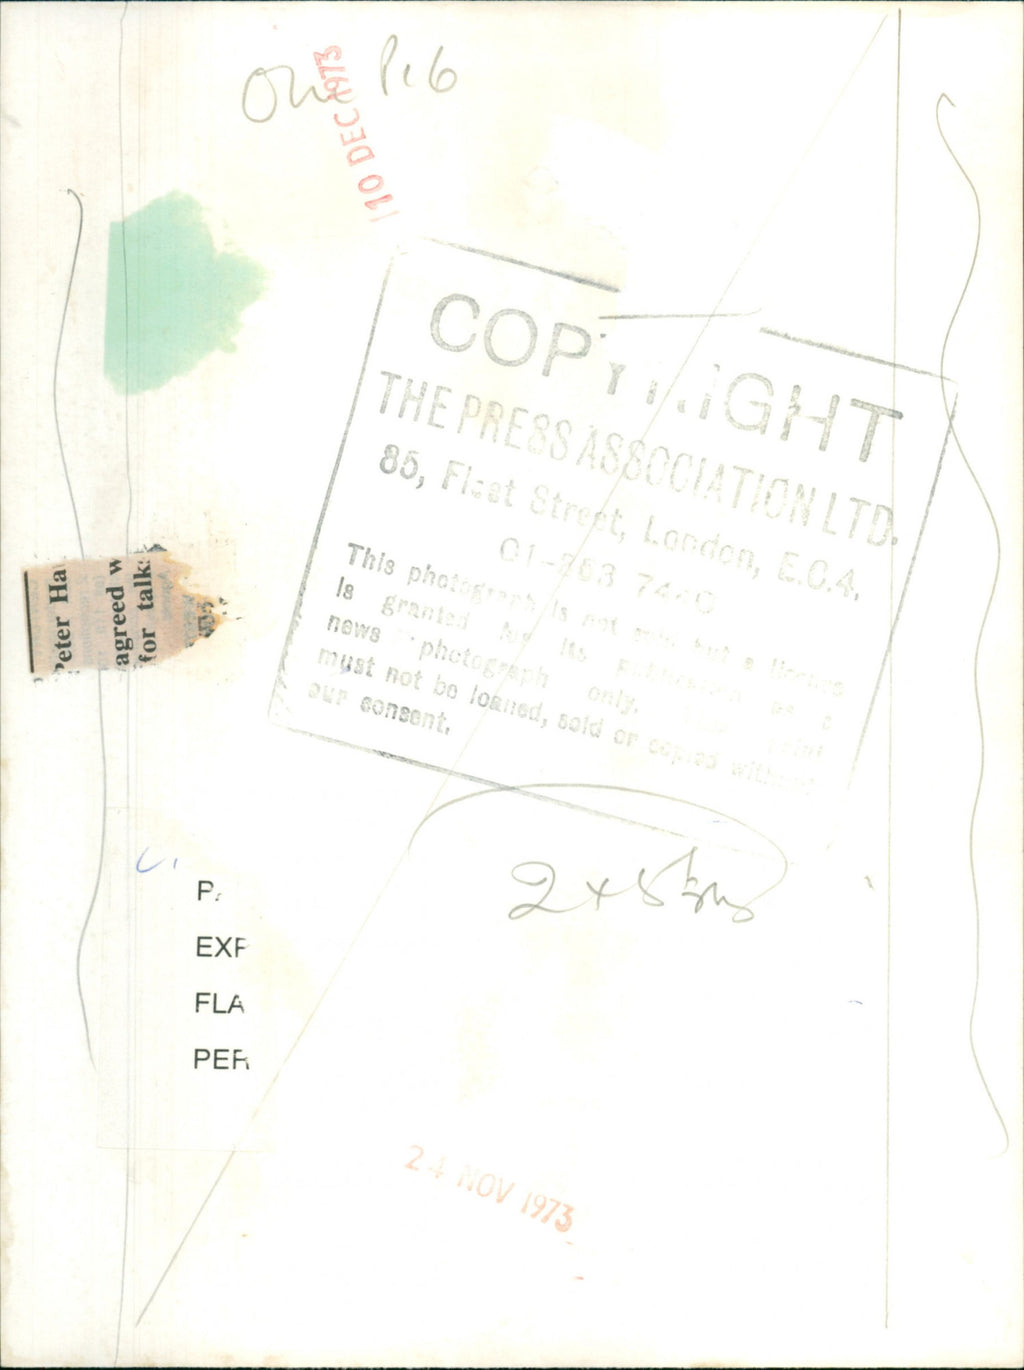 One P.6
10 DEC 1973
COPYRIGHT
THE PRESS ASSOCIATION LTD.
85, Fleet Street, London, E.C.4.
01-353 7440
This photograph is not sold but a licence
is granted for its publication as a
news photograph only. This print
must not be loaned, sold or copied without
our consent.
Peter Ha
agreed w
for talks
P
EXP
FLA
PER
2 x 5
24 NOV 1973